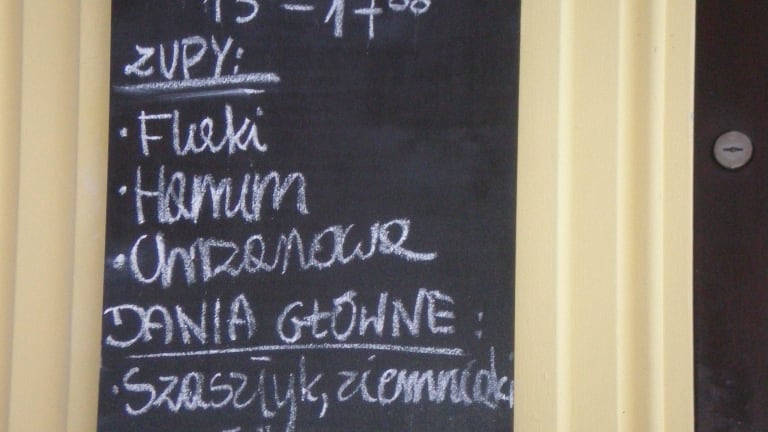 13 - 17⁰⁰
ZUPY:
· Flaki
· Harum
· Chrzanowa
DANIA GŁÓWNE:
· Szaszłyk, ziemniaki